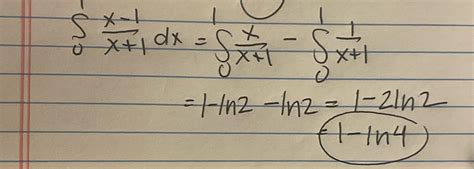 ∫₀¹ x-1/x+1 dx = ∫₀¹ x/x+1 - ∫₀¹ 1/x+1
= 1-ln2 -ln2 = 1-2ln2
= 1-ln4